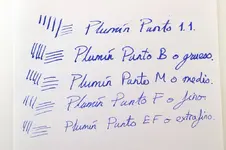 Plumín Punto 1.1.
Plumín Punto B o grueso.
Plumín Punto M o medio.
Plumín Punto F o fino.
Plumín Punto EF o extrafino.